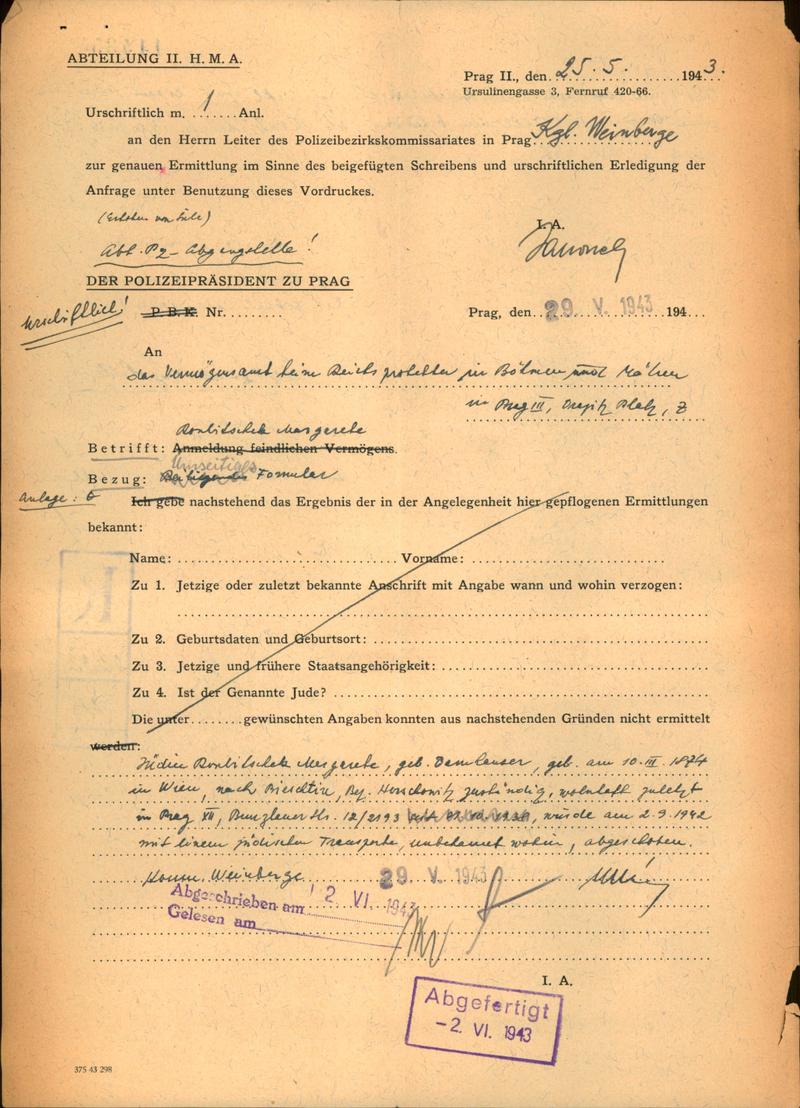 ABTEILUNG II. H. M. A.
Prag II., den 25. 5. 1943.
Ursulinengasse 3, Fernruf 420-66.
Urschriftlich m. 1 Anl.
an den Herrn Leiter des Polizeibezirkskommissariates in Prag Kgl. Weinberge
zur genauen Ermittlung im Sinne des beigefügten Schreibens und urschriftlichen Erledigung der
Anfrage unter Benutzung dieses Vordruckes.
I. A.
Abt. P2 - Abgangstelle!
DER POLIZEIPRÄSIDENT ZU PRAG
Urschriftlich!
P. B. K. Nr.........
Prag, den 29. V. 1943 194...
An
das Vermögensamt beim Reichsprotektor in Böhmen und Mähren
in Prag III,
Ronbitschek Margarete
Betrifft: Anmeldung feindlichen Vermögens.
Umseitiges
Bezug: Beiliegendes Formular
Anlage: 6
Ich gebe nachstehend das Ergebnis der in der Angelegenheit hier gepflogenen Ermittlungen
bekannt:
Name: ........ Vorname: ........
Zu 1. Jetzige oder zuletzt bekannte Anschrift mit Angabe wann und wohin verzogen:
Zu 2. Geburtsdaten und Geburtsort: ........
Zu 3. Jetzige und frühere Staatsangehörigkeit: ........
Zu 4. Ist der Genannte Jude? ........
Die unter ........ gewünschten Angaben konnten aus nachstehenden Gründen nicht ermittelt
werden:
Jüdin Ronbitschek Margarete, geb. geb. am 10. III. 1874
in Wien, nach Bez. zuständig, wohnhaft zuletzt
in Prag XII, Bunzlauer Str. 12/2193 wurde am 2.9.1942
mit einem jüdischen Transporte, unbekannt wohin, abgeschoben.
Komm. Weinberge 29. V. 1943
Abgeschrieben am 2. VI. 1943
Gelesen am
I. A.
Abgefertigt
-2. VI. 1943
375 43 298